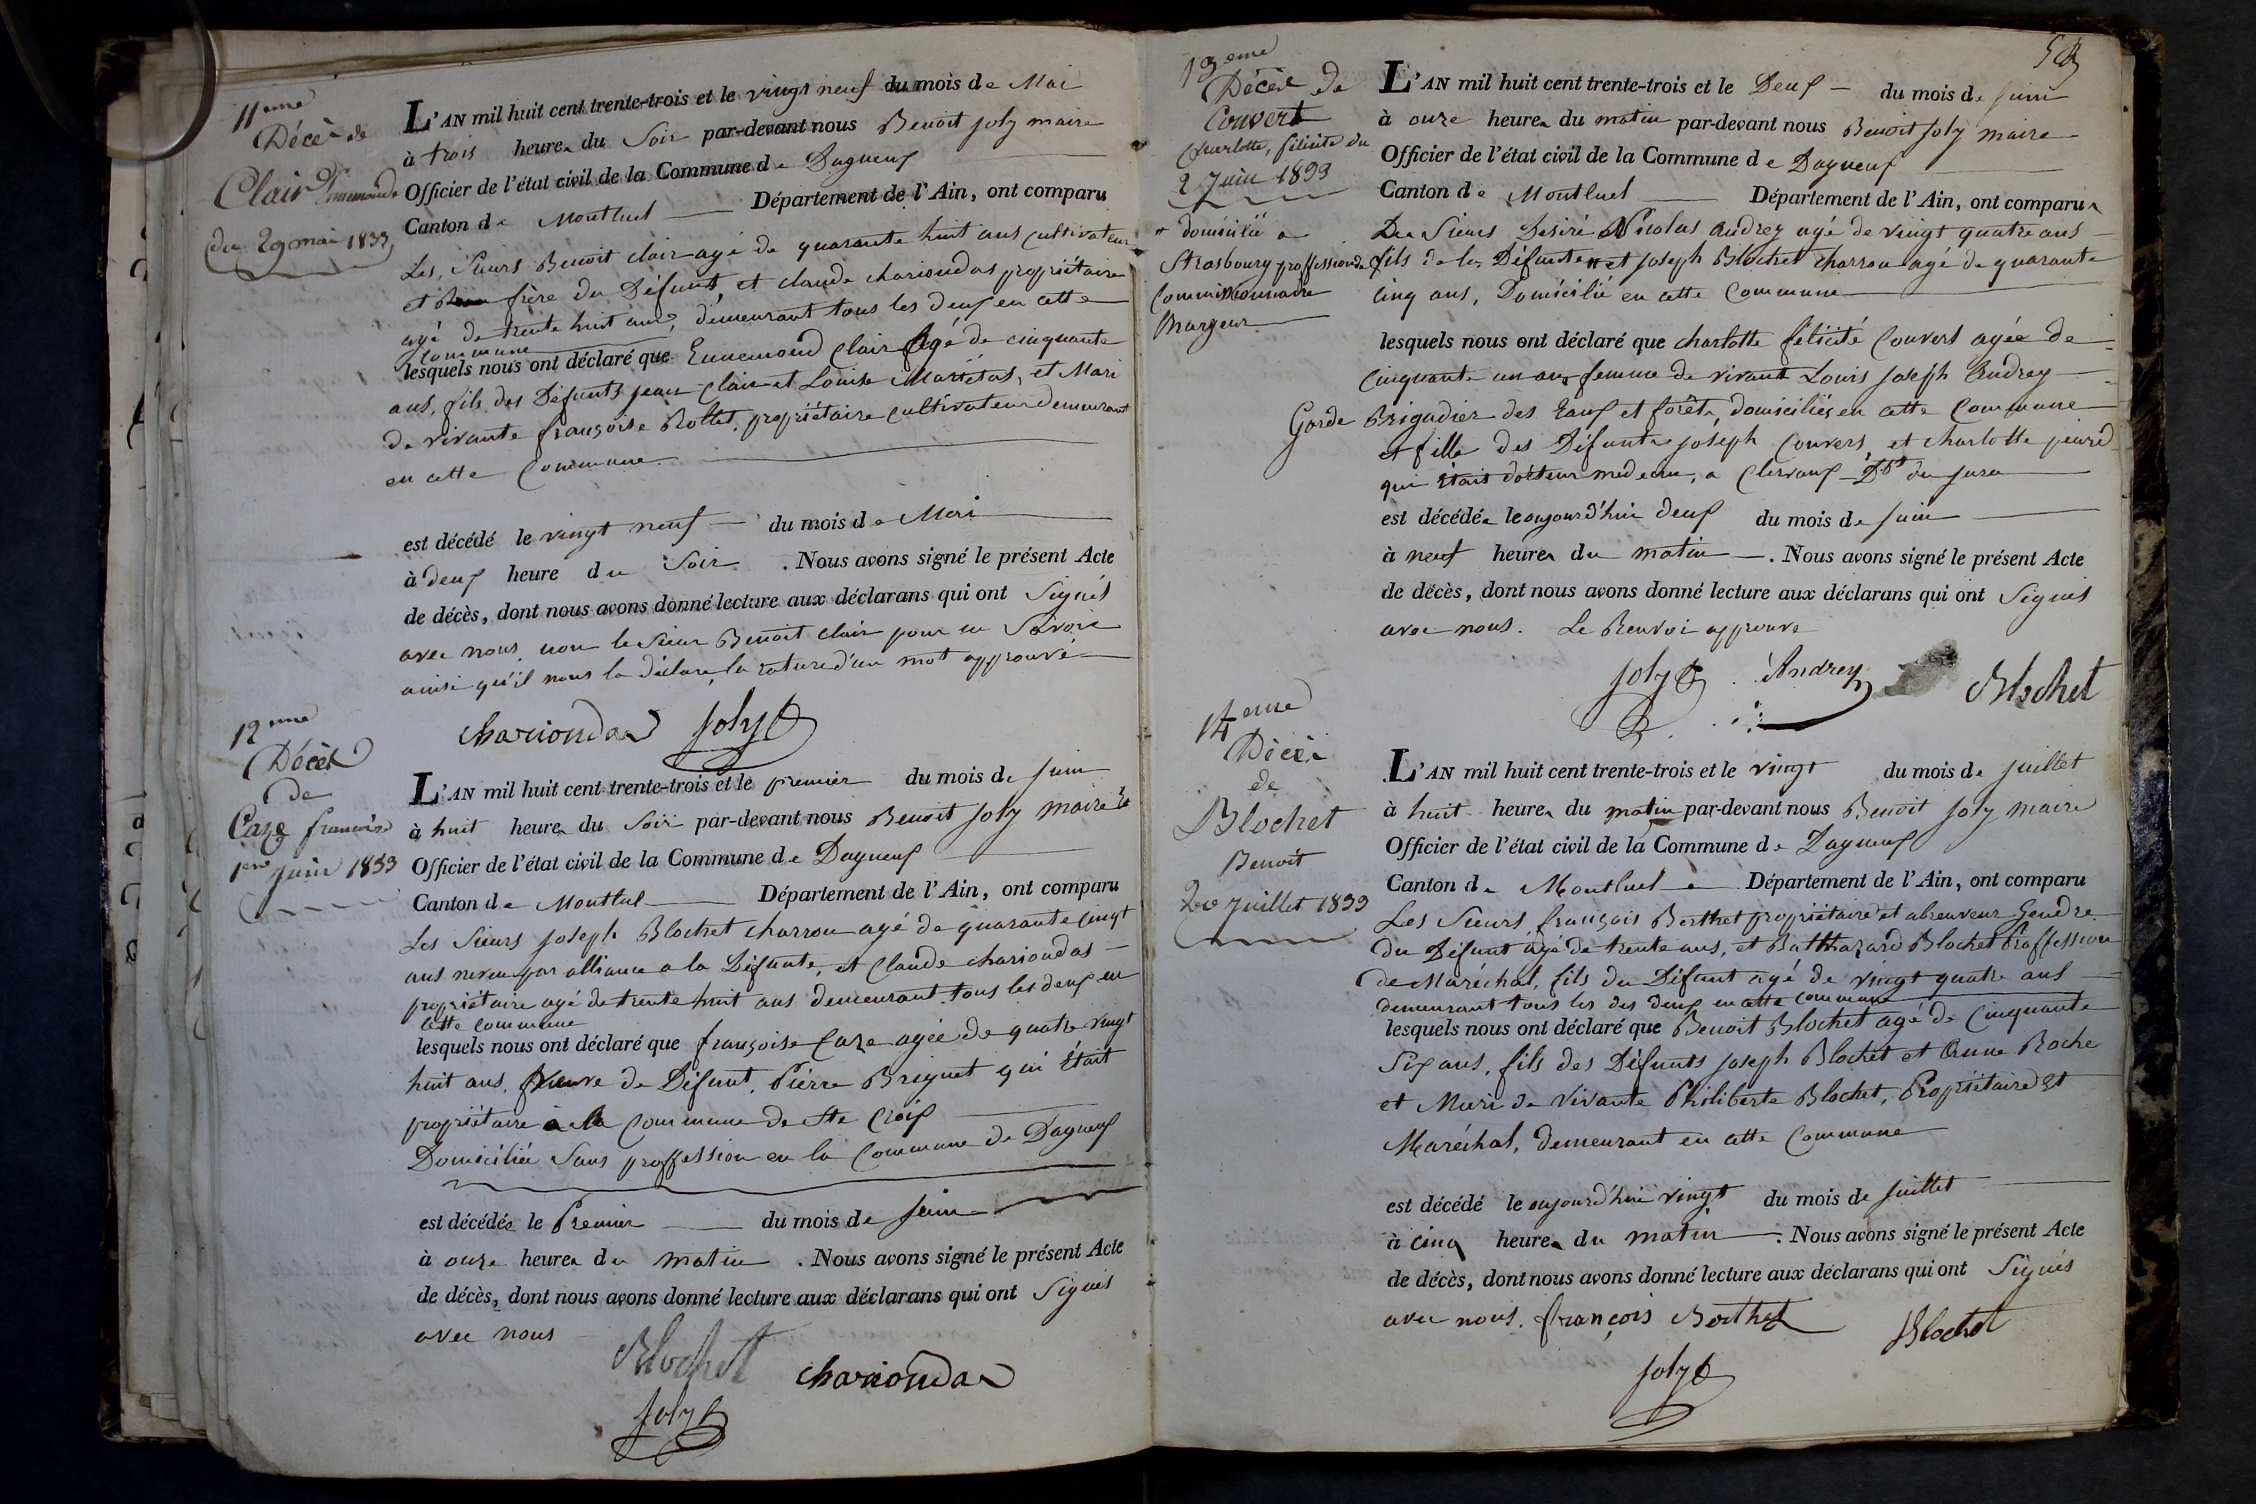 11eme
Décès de
Clair Ennemonde
du 29 mai 1833
L'AN mil huit cent trente-trois et le vingt neuf du mois de Mai
à trois heures du Soir par-devant nous Benoit Joly maire
Officier de l'état civil de la Commune de Dagneux
Canton de Montluel Département de l'Ain, ont comparu
Les Sieurs Benoit clair agé de quarante huit ans cultivateur
et frère du Défunt, et claude chariondas propriétaire
agé de trente huit ans, demeurant tous les deux en cette
commune
lesquels nous ont déclaré que Ennemond Clair Agé de cinquante
ans, fils des Défunts jean Clair et Louise Mariétas, et Mari
de vivante françoise Rollet, propriétaire cultivateur demeurant
en cette Commune.
est décédé le vingt neuf du mois de Mai
à deux heure du Soir. Nous avons signé le présent Acte
de décès, dont nous avons donné lecture aux déclarans qui ont Signés
avec nous, non le Sieur Benoit Clair pour ne Savoir
ainsi qu'il nous la déclare, la rature d'un mot approuvé
chariondas Joly
12eme
Décès
de
Caze francoise
1er Juin 1833
L'AN mil huit cent trente-trois et le premier du mois de Juin
à huit heures du Soir par-devant nous Benoit Joly Maire et
Officier de l'état civil de la Commune de Dagneux
Canton de Montluel Département de l'Ain, ont comparu
Les Sieurs Joseph Blochet charron agé de quarante Cinqt
ans neveu par alliance a la Défunte, et Claude chariondas
propriétaire agé de trente huit ans demeurant tous les deux en
cette commune
lesquels nous ont déclaré que françoise Caze agée de quatre vingt
huit ans, veuve de Défunt Pierre Briquet qui était
propriétaire à la Commune de Ste Croix
Domiciliée Sans proffession en la Commune de Dagneux
est décédée le Premier du mois de Juin
à onze heures du matin. Nous avons signé le présent Acte
de décès, dont nous avons donné lecture aux déclarans qui ont Signés
avec nous
Blochet chariondas
Joly
13eme
Décès de
Couvert
Charlotte, félicité du
2 Juin 1833
domicilié a
Strasbourg proffession de
Commissionnaire
Margeur
L'AN mil huit cent trente-trois et le Deux du mois de Juin
à onze heures du matin par-devant nous Benoit Joly maire
Officier de l'état civil de la Commune de Dagneux
Canton de Montluel Département de l'Ain, ont comparu
Les Sieurs Desiré Nicolas Andrey agé de vingt quatre ans
fils de la Défunte et Joseph Blochet charron agé de quarante
cinq ans, Domicilié en cette Commune
lesquels nous ont déclaré que charlotte félicité Couvert agée de
Cinquante un ans femme de vivant Louis Joseph Andrey
Garde Brigadier des Eaux et forêts domiciliés en cette Commune
et fille des Défunts joseph Couvers, et charlotte
qui était docteur médecin, a Clervaux Dpt du Jura
est décédée le aujourd'hui deux du mois de Juin
à neuf heures du matin. Nous avons signé le présent Acte
de décès, dont nous avons donné lecture aux déclarans qui ont Signés
avec nous. Le Renvoi approuvé
Joly Andrey Blochet
14eme
Décès
de
Blochet
Benoit
20 Juillet 1833
L'AN mil huit cent trente-trois et le vingt du mois de Juillet
à huit heures du matin par-devant nous Benoit Joly Maire
Officier de l'état civil de la Commune de Dagneux
Canton de Montluel Département de l'Ain, ont comparu
Les Sieurs françois Berthet propriétaire et abreuveur Gendre
du Défunt agé de trente ans, et Balthazard Blochet Proffession
de Maréchal, fils du Défunt agé de vingt quatre ans
demeurant tous les des deux en cette commune
lesquels nous ont déclaré que Benoit Blochet agé de Cinquante
Six ans, fils des Défunts Joseph Blochet et Anne Roche
et Mari de Vivante Philiberte Blochet, Propriétaire et
Maréchal, demeurant en cette Commune
est décédé le aujourd'hui vingt du mois de Juillet
à cinq heures du matin. Nous avons signé le présent Acte
de décès, dont nous avons donné lecture aux déclarans qui ont Signés
avec nous. françois Berthet Blochet
Joly